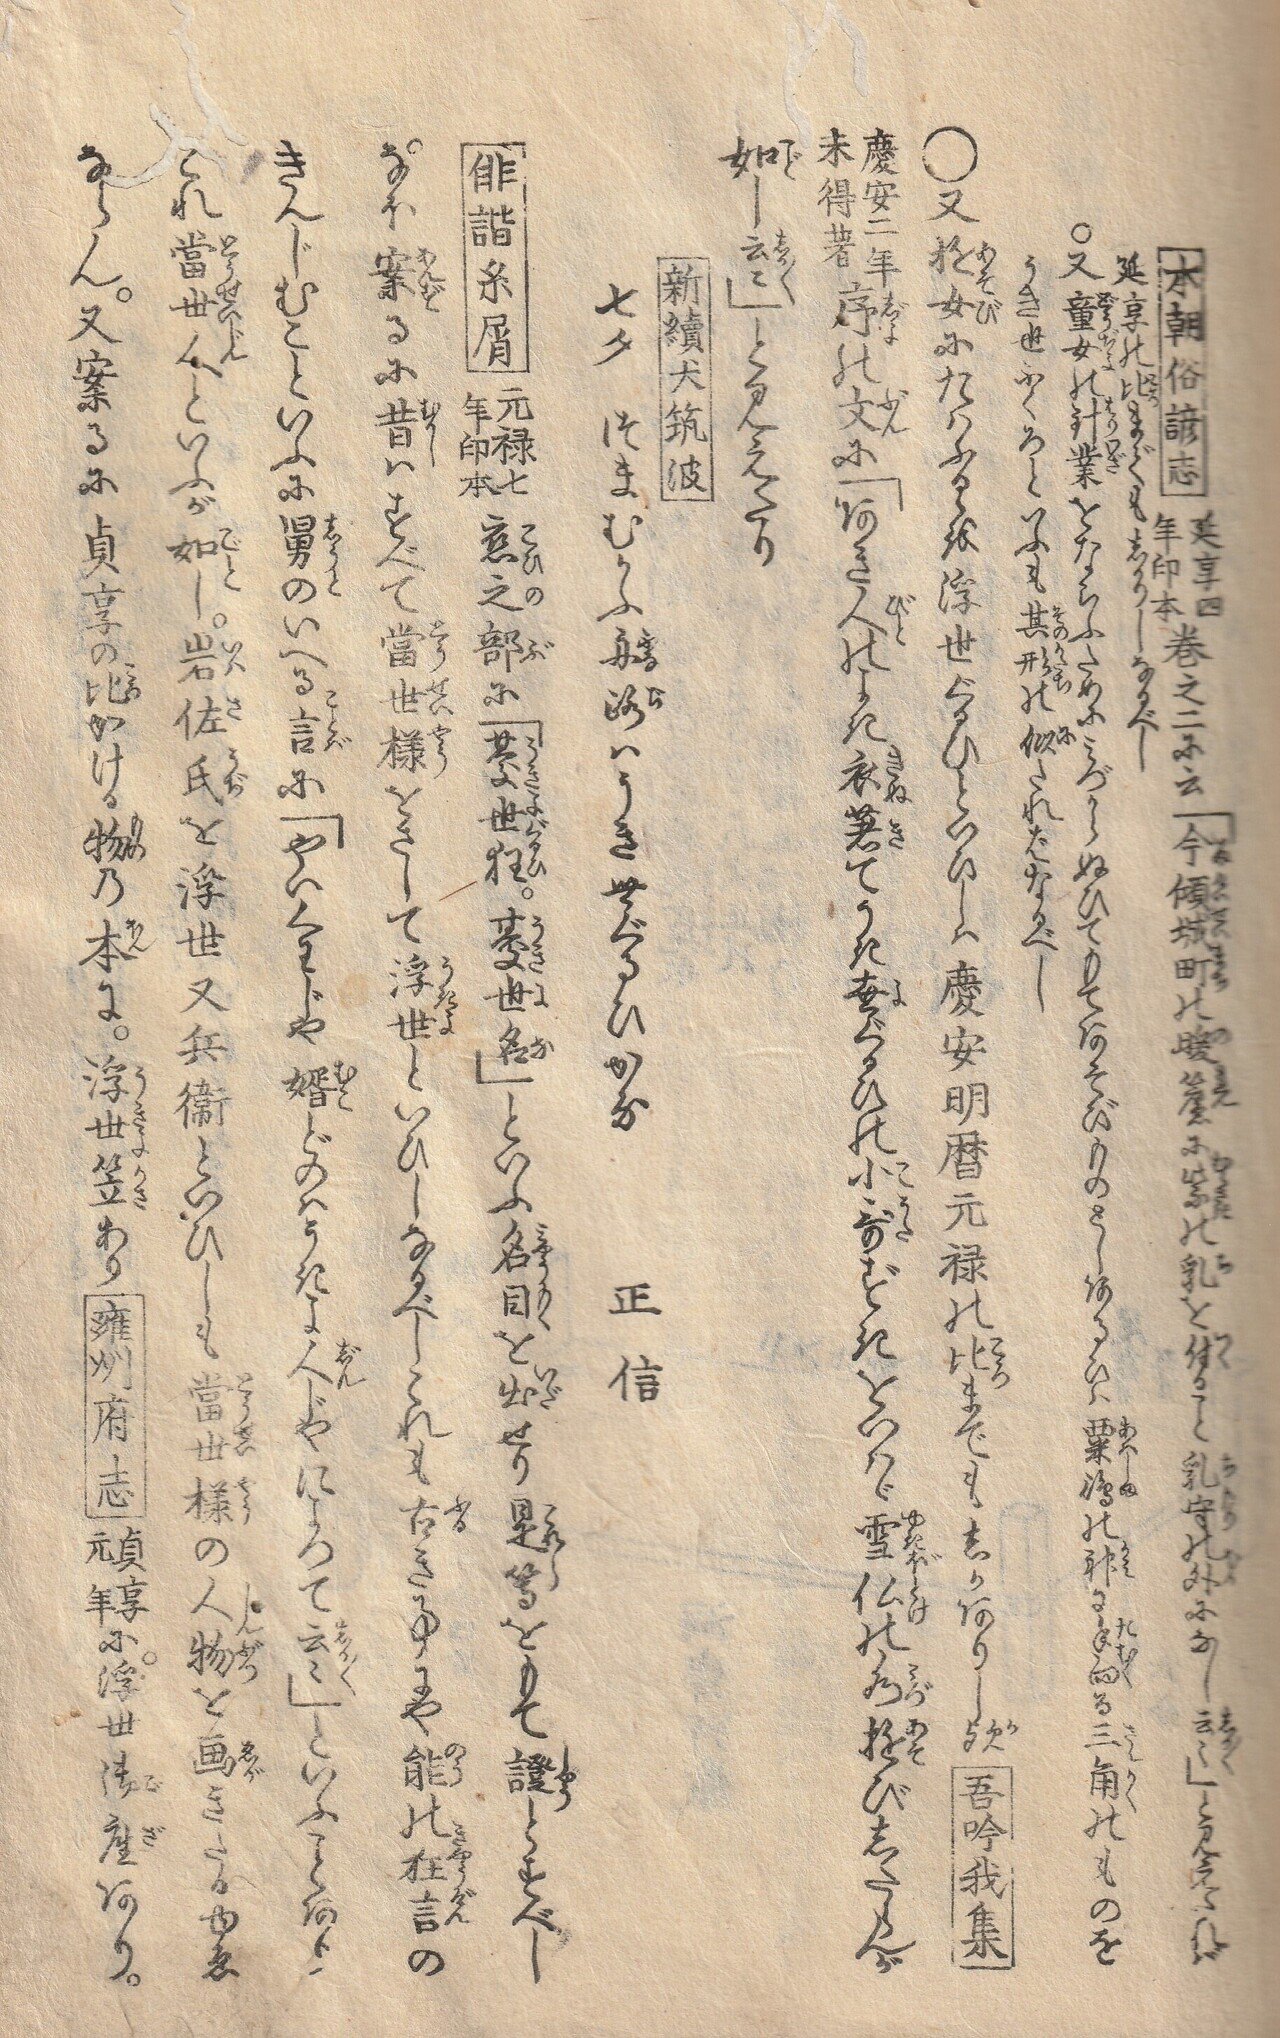 本朝俗諺志 延享四年印本 巻之二に云「今傾城町の暖簾に紫の乳を付ること乳守の外になし云云」と見えたれば
延享の比までもしかりしなるべし
○又童女の針業をならふためにみづからぬひてもてあそびものとしあるひは粟嶋の神に手向る三角のものを
うき世ぶくろといふも其形の似たればなるべし
○又遊女にたはふるゝを浮世ぐるひといひしは慶安明暦元禄の比までもしかありし歟 吾吟我集
慶安二年未得著 序の文に「わかき人のよき衣着てうき世ぐるひの小哥ずきをいはゞ雪仏の水遊びしたらんが
如し云云」と見えたり
新續犬筑波
七夕 つまむかふ舟路はうき世ぐるひかな 正信
俳諧糸屑 元禄七年印本 恋之部に「憂世狂。憂世名」といふ名目を出せり是等をもて證とすべし
。なほ案るに昔はすべて當世様をさして浮世といひしなるべしこれも古き事にや能の狂言の
きんじむこといふに舅のいへる言に「やいくわじや婿どのはうきよ人じやによつて云云」といふことあり
これ當世人といふが如し。岩佐氏を浮世又兵衛といひしも當世様の人物を画きたるゆゑ
ならん。又案るに貞享の比かける物の本に。浮世笠あり 雍州府志 貞享元年 に。浮世御座あり。